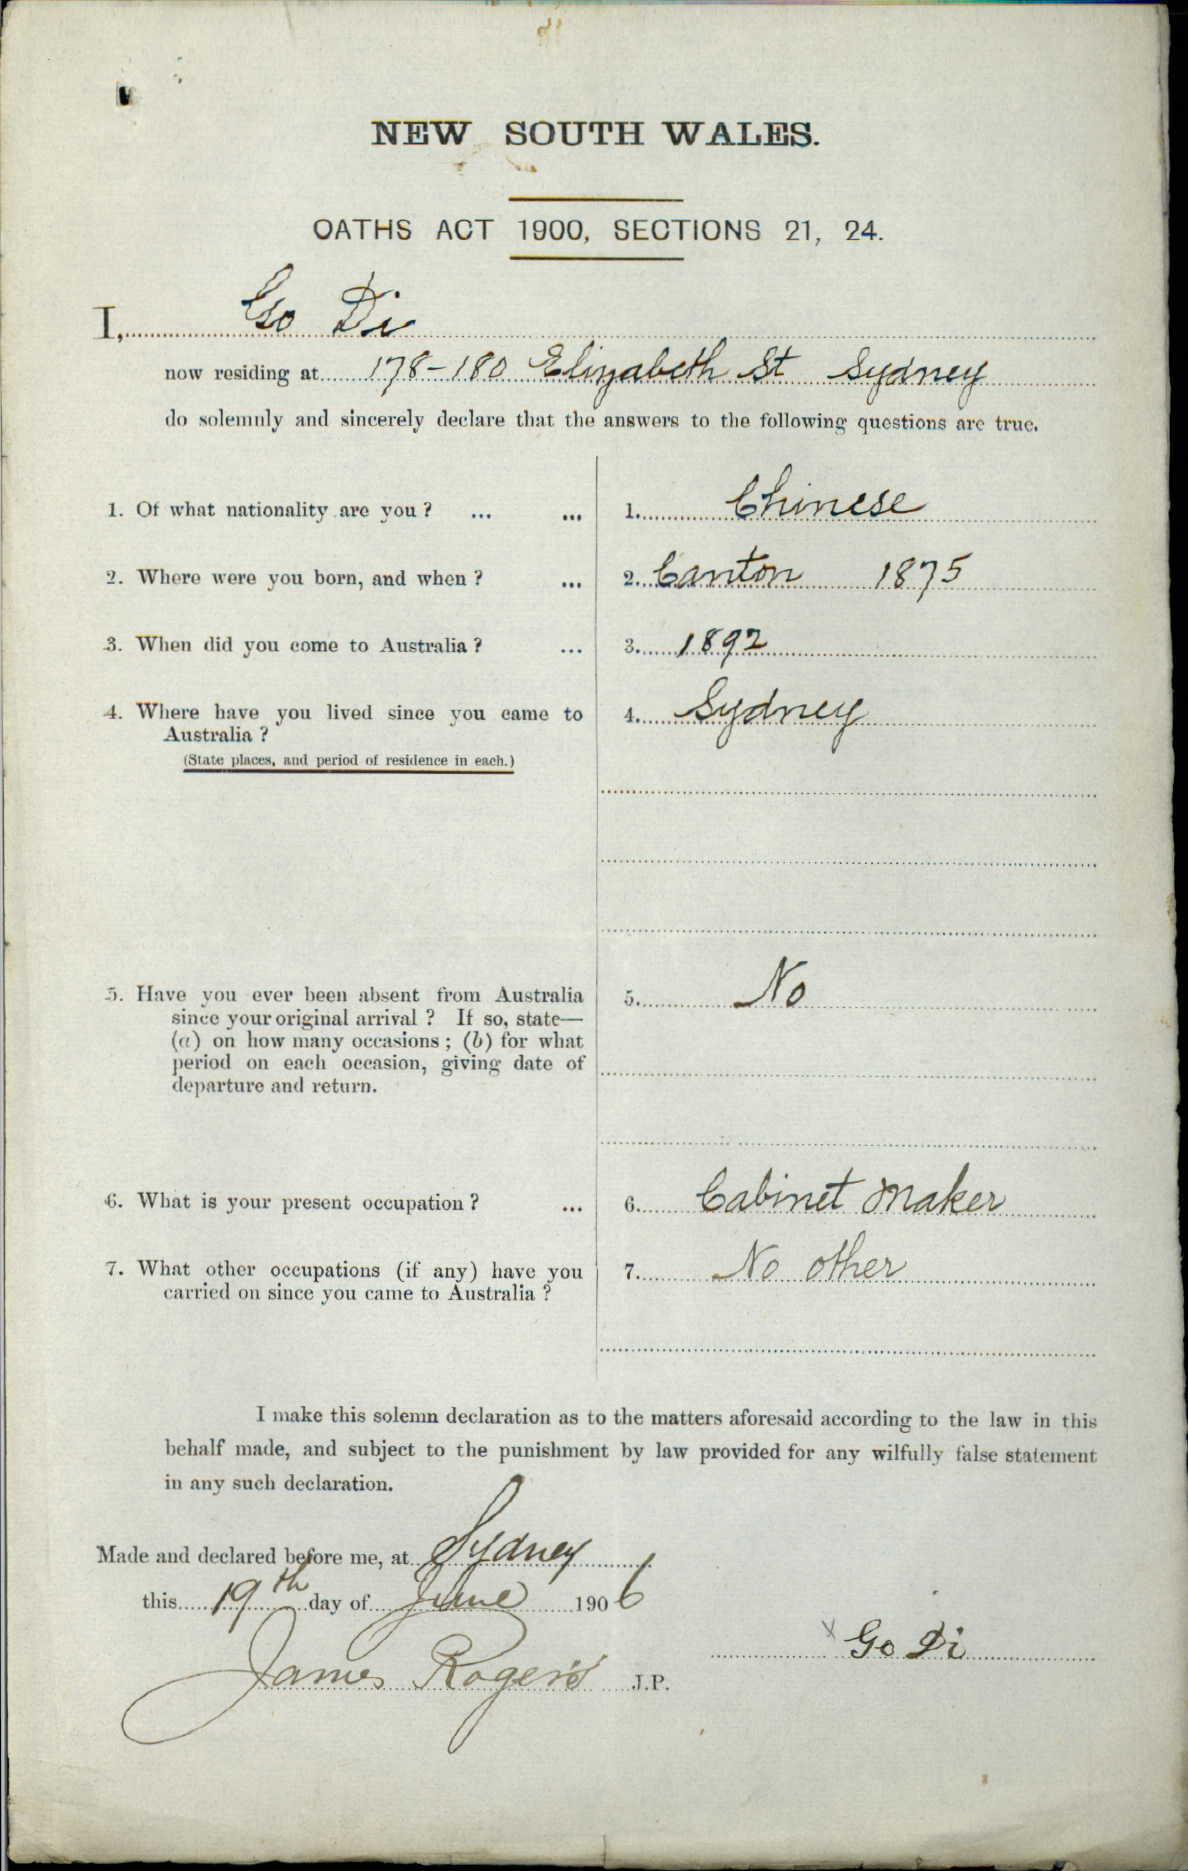 NEW SOUTH WALES.
OATHS ACT 1900, SECTIONS 21, 24.
I, Go Di
now residing at 178-180 Elizabeth St Sydney
do solemnly and sincerely declare that the answers to the following questions are true.
1. Of what nationality are you? ... ... 1. Chinese
2. Where were you born, and when? ... 2. Canton 1875
3. When did you come to Australia? ... 3. 1892
4. Where have you lived since you came to 4. Sydney
Australia?
(State places, and period of residence in each.)
5. Have you ever been absent from Australia 5. No
since your original arrival? If so, state—
(a) on how many occasions; (b) for what
period on each occasion, giving date of
departure and return.
6. What is your present occupation? ... 6. Cabinet Maker
7. What other occupations (if any) have you 7. No other
carried on since you came to Australia?
I make this solemn declaration as to the matters aforesaid according to the law in this
behalf made, and subject to the punishment by law provided for any wilfully false statement
in any such declaration.
Made and declared before me, at Sydney
this 19th day of June 1906
x Go Di
James Rogers J.P.